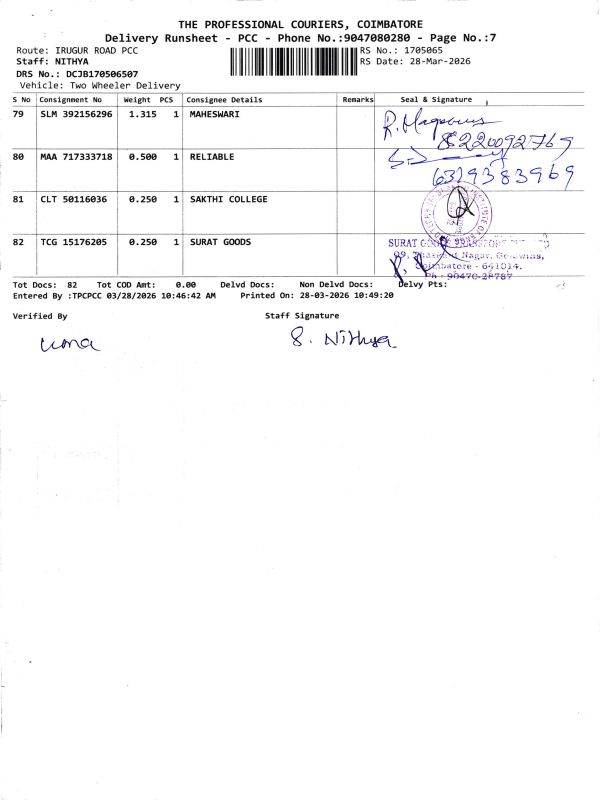 THE PROFESSIONAL COURIERS, COIMBATORE
Delivery Runsheet - PCC - Phone No.:9047080280 - Page No.:7
Route: IRUGUR ROAD PCC
RS No.: 1705065
Staff: NITHYA
RS Date: 28-Mar-2026
DRS No.: DCJB170506507
Vehicle: Two Wheeler Delivery
S No Consignment No Weight PCS Consignee Details Remarks Seal & Signature
79 SLM 392156296 1.315 1 MAHESWARI
8220092769
80 MAA 717333718 0.500 1 RELIABLE
6379383969
81 CLT 50116036 0.250 1 SAKTHI COLLEGE
82 TCG 15176205 0.250 1 SURAT GOODS
SURAT GOODS TRANSPORT
Nagar, Goldwins,
Coimbatore - 641014.
Ph : 90470-28787
Tot Docs: 82 Tot COD Amt: 0.00 Delvd Docs: Non Delvd Docs: Delvy Pts:
Entered By :TPCPCC 03/28/2026 10:46:42 AM Printed On: 28-03-2026 10:49:20
Verified By Staff Signature
uma S. Nithya